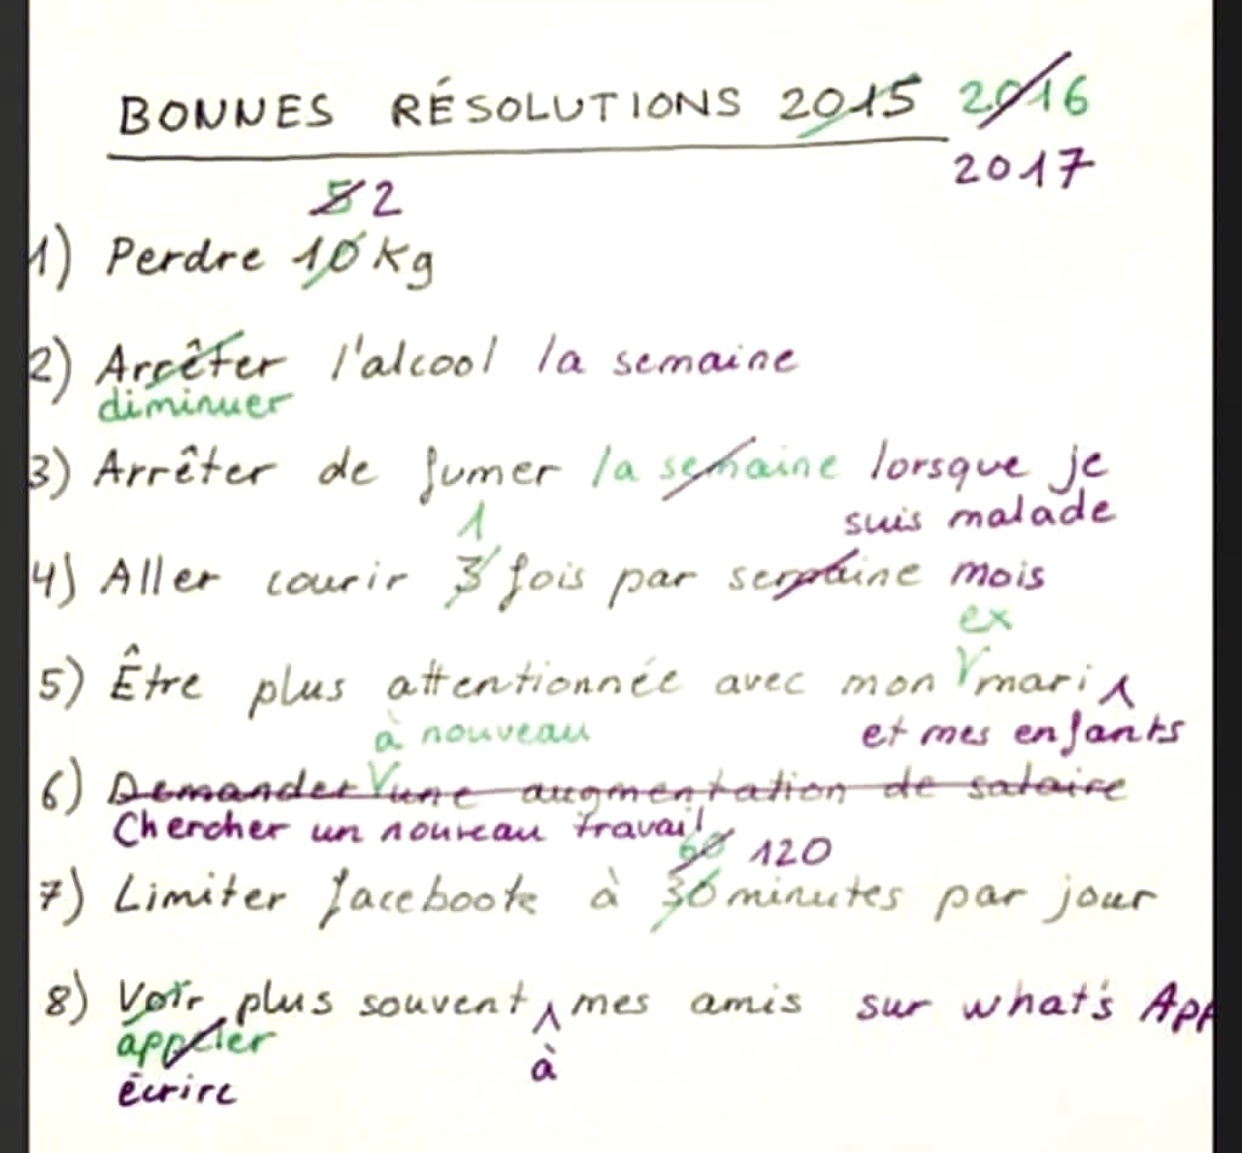 BONNES RÉSOLUTIONS 2015 2016
2017
5 2
1) Perdre 10 Kg
2) Arrêter l'alcool la semaine
diminuer
3) Arrêter de fumer la semaine lorsque je
suis malade
1
4) Aller courir 3 fois par semaine mois
ex
5) Être plus attentionnée avec mon mari
à nouveau et mes enfants
6) Demander une augmentation de salaire
Chercher un nouveau travail
60 120
7) Limiter facebook à 30 minutes par jour
8) Voir plus souvent mes amis sur what's App
appeler
à
écrire